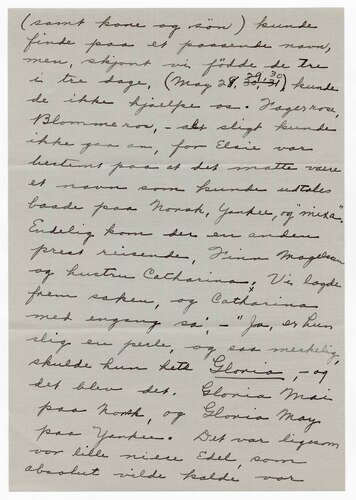 (samt kone og søn) kunde
finde paa et passende navn,
men, skjønt vi fødde de tre
i tre dage, (May 28, 29, 30) kunde
de ikke hjælpe os. Hagerrose,
Blommeros, - alt sligt kunde
ikke gaa an, for Elsie var
bestemt paa at det matte være
et navn som kunde udtales
baade paa Norsk, Yankee, og "mixa".
Endelig kom der en anden
prest reisende, Finn Magelssen
og hustru Catharina, Vi lagde
frem saken, og Catharina
med engang sa', - "Ja, er hun
slig en perle, og saa merkelig,
skulde hun hete Gloria, - og
det blev det. Gloria Mai
paa Norsk, og Gloria May
paa Yankee. Det var ligesom
vor lille niece Edel, som
absolut vilde kalde vor